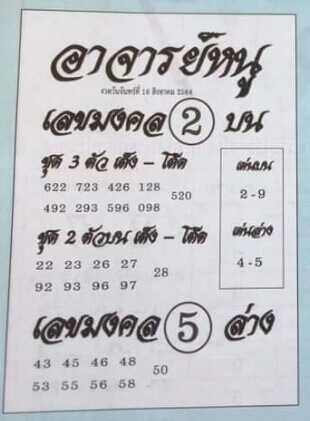 อาจารย์หนู
งวดวันจันทร์ที่ 16 สิงหาคม 2564
เลขมงคล 2 บน
ชุด 3 ตัว เต็ง - โต๊ด
622 723 426 128
520
492 293 596 098
เด่นบน
2 - 9
ชุด 2 ตัวบน เต็ง - โต๊ด
22 23 26 27
28
92 93 96 97
เด่นล่าง
4 - 5
เลขมงคล 5 ล่าง
43 45 46 48
50
53 55 56 58